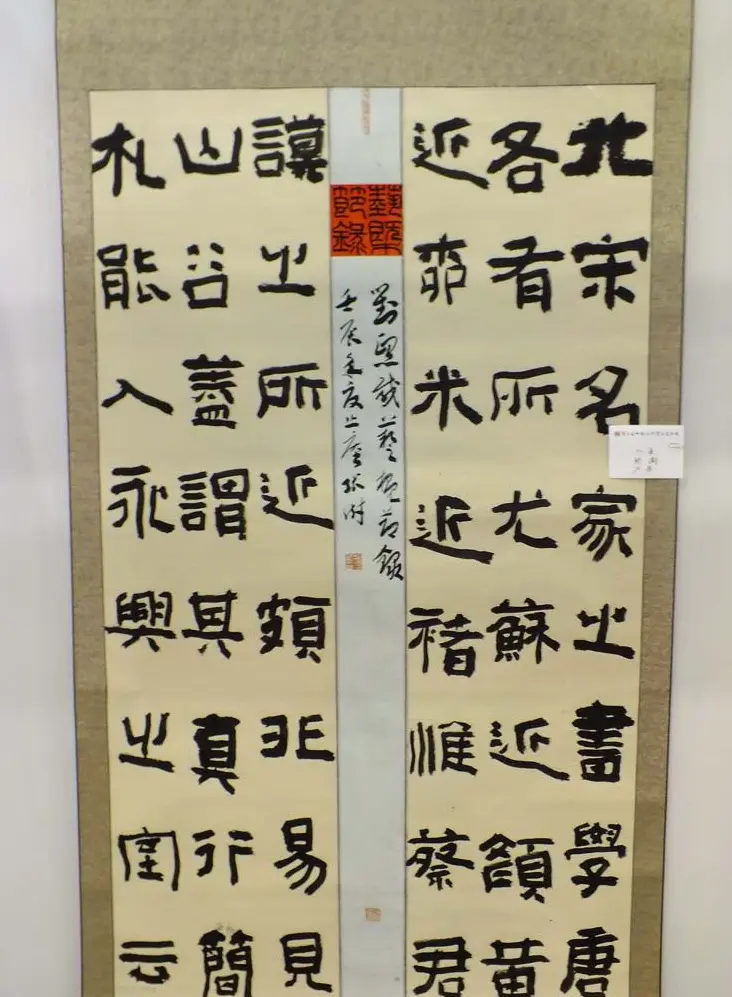 北宋名家之書學唐
各有所尤蘇近顏黃
近柳米近褚惟蔡君
藝概節錄
劉熙載藝概節錄
壬辰年夏
謨之所近頗非易見
山谷蓋謂其真行簡
札能入永興之室云